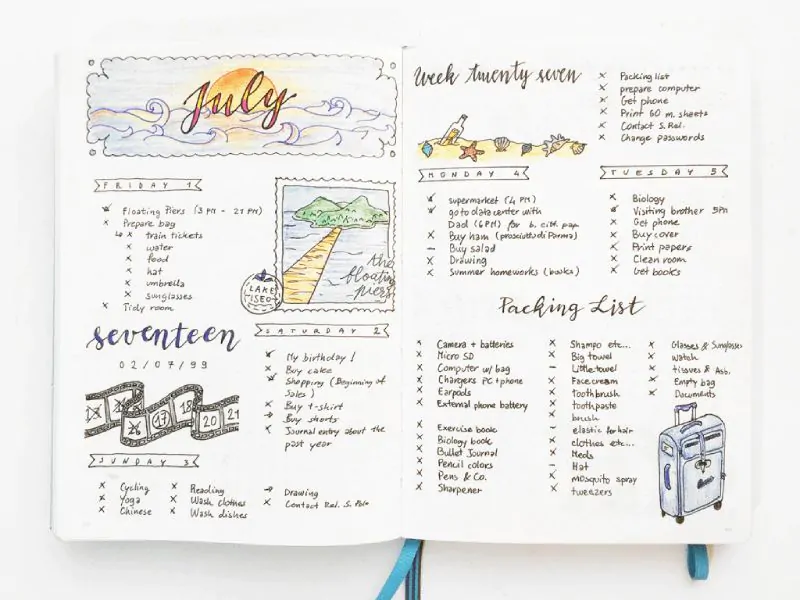 July
FRIDAY 1
Floating Piers (3 PM - 21 PM)
Prepare bag
train tickets
water
food
hat
umbrella
sunglasses
Tidy room
the
floating
piers
LAKE
ISEO
seventeen
02/07/99
16
17
18
20
21
SATURDAY 2
My birthday!
Buy cake
Shopping (Beginning of
Sales)
Buy t-shirt
Buy shorts
Journal entry about the
past year
SUNDAY 3
Cycling
Yoga
Chinese
Reading
Wash clothes
Wash dishes
Drawing
Contact Rel. S. Polo
Week twenty seven
Packing list
prepare computer
Get phone
Print 60 m. sheets
Contact S. Rel.
Change passwords
MONDAY 4
supermarket (4 PM)
go to data center with
Dad (6 PM) for b. citt. pap.
Buy ham (prosciutto di Parma)
Buy salad
Drawing
Summer homeworks (books)
TUESDAY 5
Biology
Visiting brother 5PM
Get phone
Buy cover
Print papers
Clean room
Get books
Packing List
Camera + batteries
Micro SD
Computer w/ bag
Chargers PC + phone
Earpods
External phone battery
Exercise book
Biology book
Bullet Journal
Pencil colors
Pens & Co.
Sharpener
Shampo etc...
Big towel
Little towel
Face cream
Toothbrush
Toothpaste
brush
elastic for hair
clothes etc...
Meds
Hat
mosquito spray
tweezers
Glasses & Sunglasses
watch
tissues & Ass.
Empty bag
Documents